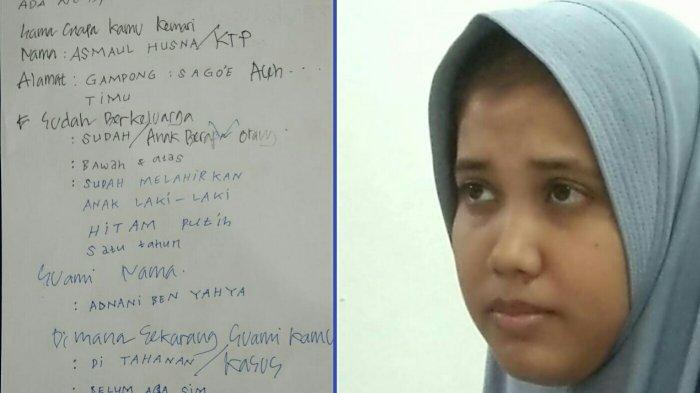 ADA NO
Sama Siapa Kamu Kemari
Nama : ASMAUL HUSNA / KTP
Alamat : GAMPONG : SAGOE Aceh . . .
TIMU
Sudah Berkeluarga
: SUDAH / Anak Berapa orang.
: Bawah & atas
: SUDAH MELAHIRKAN
ANAK LAKI-LAKI
HITAM Putih
Satu tahun
Suami Nama.
: ADNANI BEN YAHYA
Di mana Sekarang Suami Kamu
: Di TAHANAN / Kasus
: BELUM ADA SIM